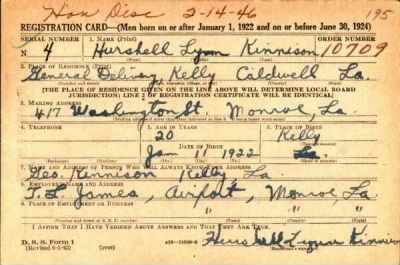 Hon Disc 2-14-46 195
REGISTRATION CARD—(Men born on or after January 1, 1922 and on or before June 30, 1924)
SERIAL NUMBER 1. NAME (Print) ORDER NUMBER
N 4 Hurshell Lynn Kinnison 10709
2. PLACE OF RESIDENCE (Print)
General Delivery, Kelly Caldwell La.
[THE PLACE OF RESIDENCE GIVEN ON THE LINE ABOVE WILL DETERMINE LOCAL BOARD
JURISDICTION; LINE 2 OF REGISTRATION CERTIFICATE WILL BE IDENTICAL]
3. MAILING ADDRESS
417 Washington St. Monroe, La.
4. TELEPHONE 5. AGE IN YEARS 6. PLACE OF BIRTH
20 Kelly
DATE OF BIRTH
Jan 11 1922 La.
7. NAME AND ADDRESS OF PERSON WHO WILL ALWAYS KNOW YOUR ADDRESS
Geo. Kinnison Kelly La
8. EMPLOYER'S NAME AND ADDRESS
T. L. James, Airport, Monroe, La.
9. PLACE OF EMPLOYMENT OR BUSINESS
" " "
I AFFIRM THAT I HAVE VERIFIED ABOVE ANSWERS AND THAT THEY ARE TRUE.
D. S. S. Form 1 (over)
(Revised 6-1-42) Hurshell Lynn Kinnison